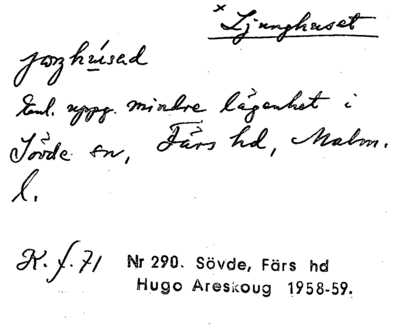 × Ljunghuset
joŋhúsad
Enl. uppg. mindre lägenhet i
Sövde sn, Färs hd, Malm.
l.
K. f. 71 Nr 290. Sövde, Färs hd
Hugo Areskoug 1958-59.